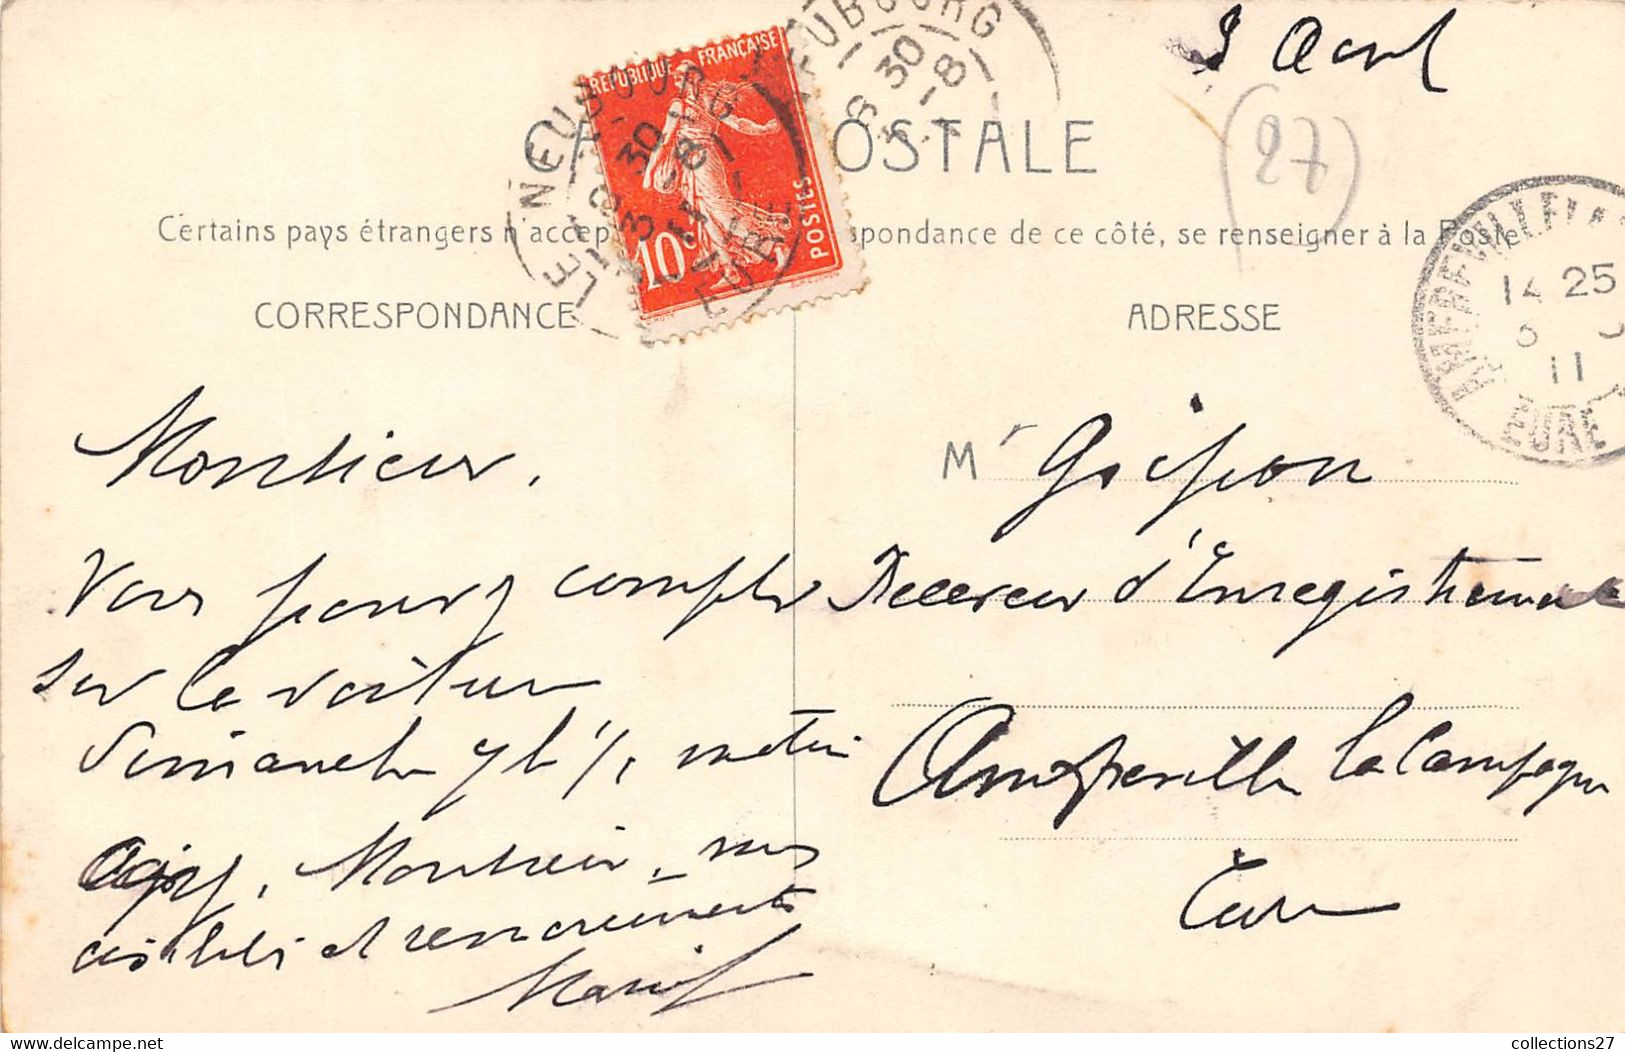 3 Avril
(27)
POSTALE
Certains pays étrangers n'accep spondance de ce côté, se renseigner à la Poste
CORRESPONDANCE
ADRESSE
REPUBLIQUE FRANÇAISE
10c
POSTES
LE NEUBOURG
EURE
NEUBOURG
6 30
AMFREVILLE LA
14 25
11
EURE
Monsieur,
Vous pouvez compter
sur la voiture
Dimanche 7h 1/2 matin
Agréez, Monsieur, mes
civilités et remerciements
Mr
Receveur d'Enregistrement
Amfreville la Campagne
Eure
collections27